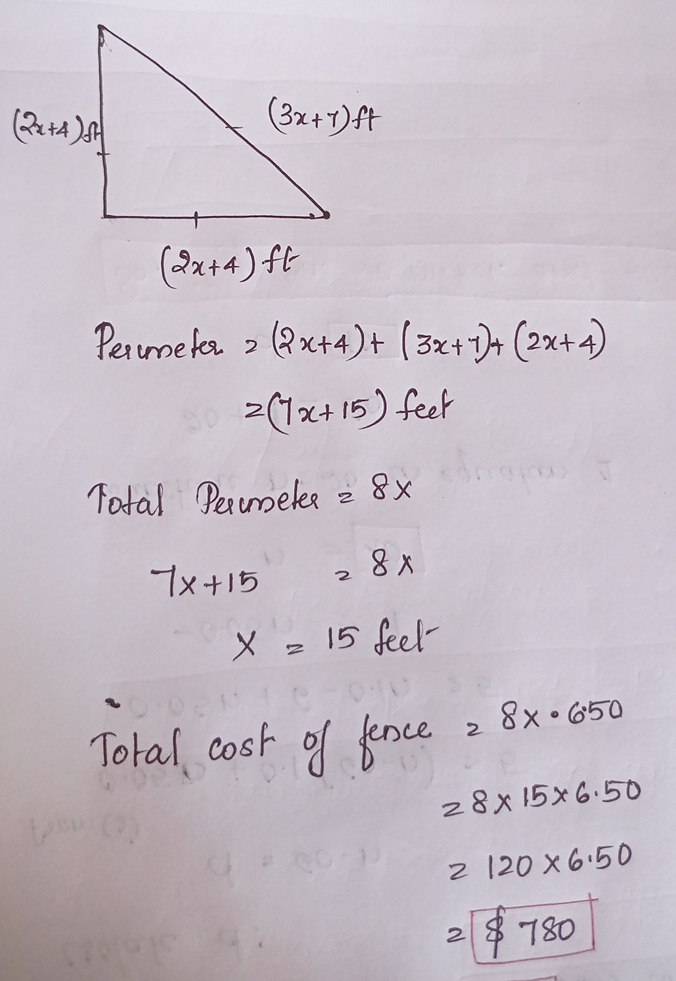 (2x+4)ft
(3x+7)ft
(2x+4) ft
Perimeter = (2x+4)+(3x+7)+(2x+4)
=(7x+15) feet
Total Perimeter = 8x
7x+15 = 8x
x = 15 feet
Total cost of fence = 8x · 6.50
= 8 x 15 x 6.50
= 120 x 6.50
= $ 780